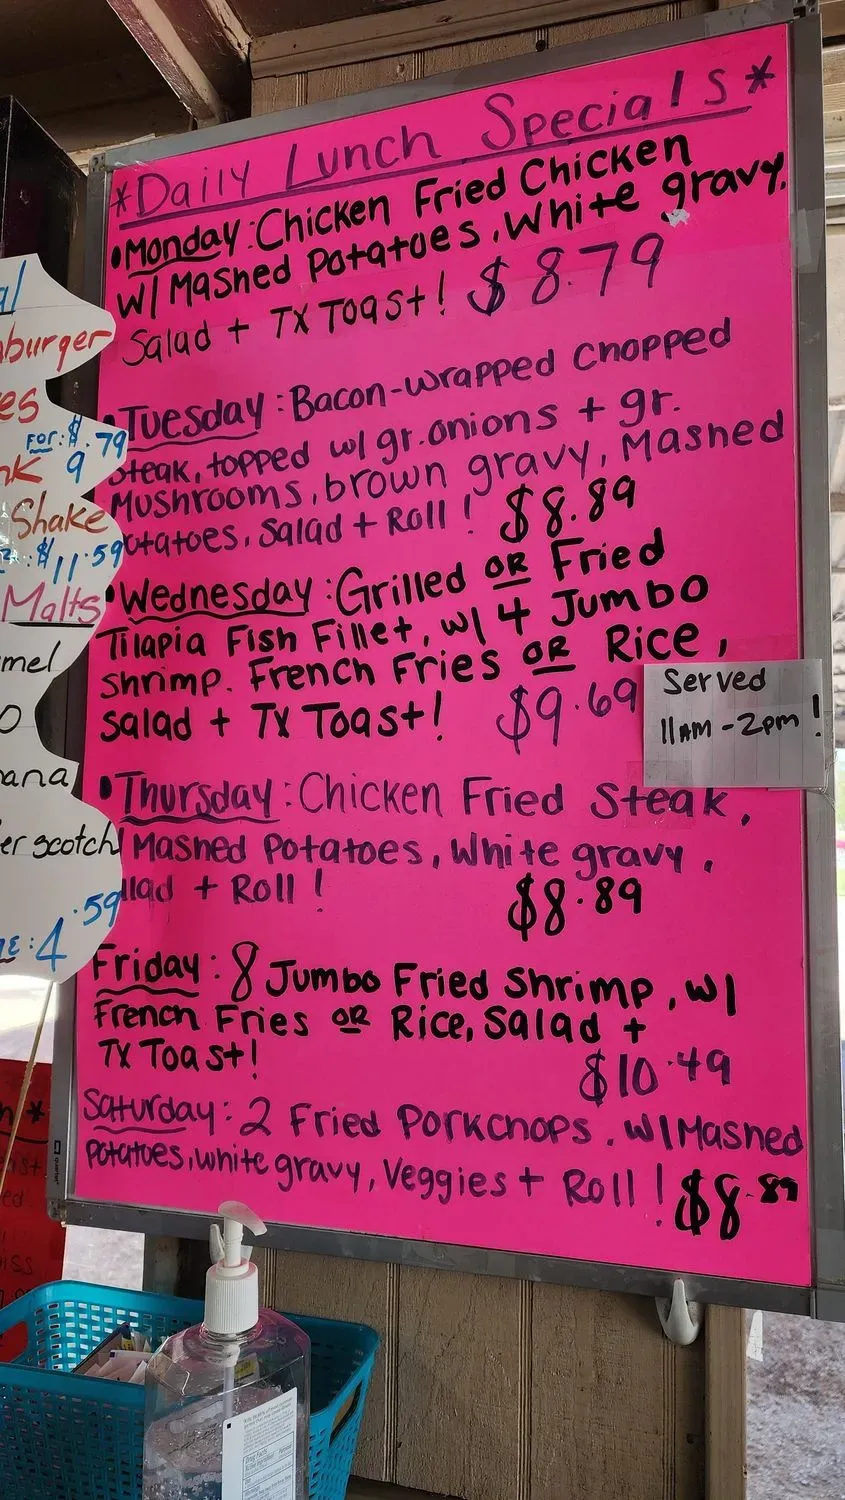 *Daily Lunch Specials*
•Monday: Chicken Fried Chicken
w/ Mashed Potatoes, White gravy,
Salad + TX Toast! $8.79
•Tuesday: Bacon-wrapped chopped
steak, topped w/ gr. onions + gr.
Mushrooms, brown gravy, Mashed
otatoes, Salad + Roll! $8.89
•Wednesday: Grilled OR Fried
Tilapia Fish Fillet, w/ 4 Jumbo
shrimp. French Fries OR Rice,
Salad + TX Toast! $9.69
Served
11AM-2pm!
•Thursday: Chicken Fried Steak,
Mashed Potatoes, White gravy,
alad + Roll! $8.89
Friday: 8 Jumbo Fried Shrimp, w/
French Fries OR Rice, Salad +
TX Toast! $10.49
Saturday: 2 Fried Porkchops, w/ Mashed
Potatoes, white gravy, Veggies + Roll! $8.89
al
burger
es
FOR: $9.79
nk
Shake
$11.59
Malts
mel
O
ana
er scotch
E: 4.59